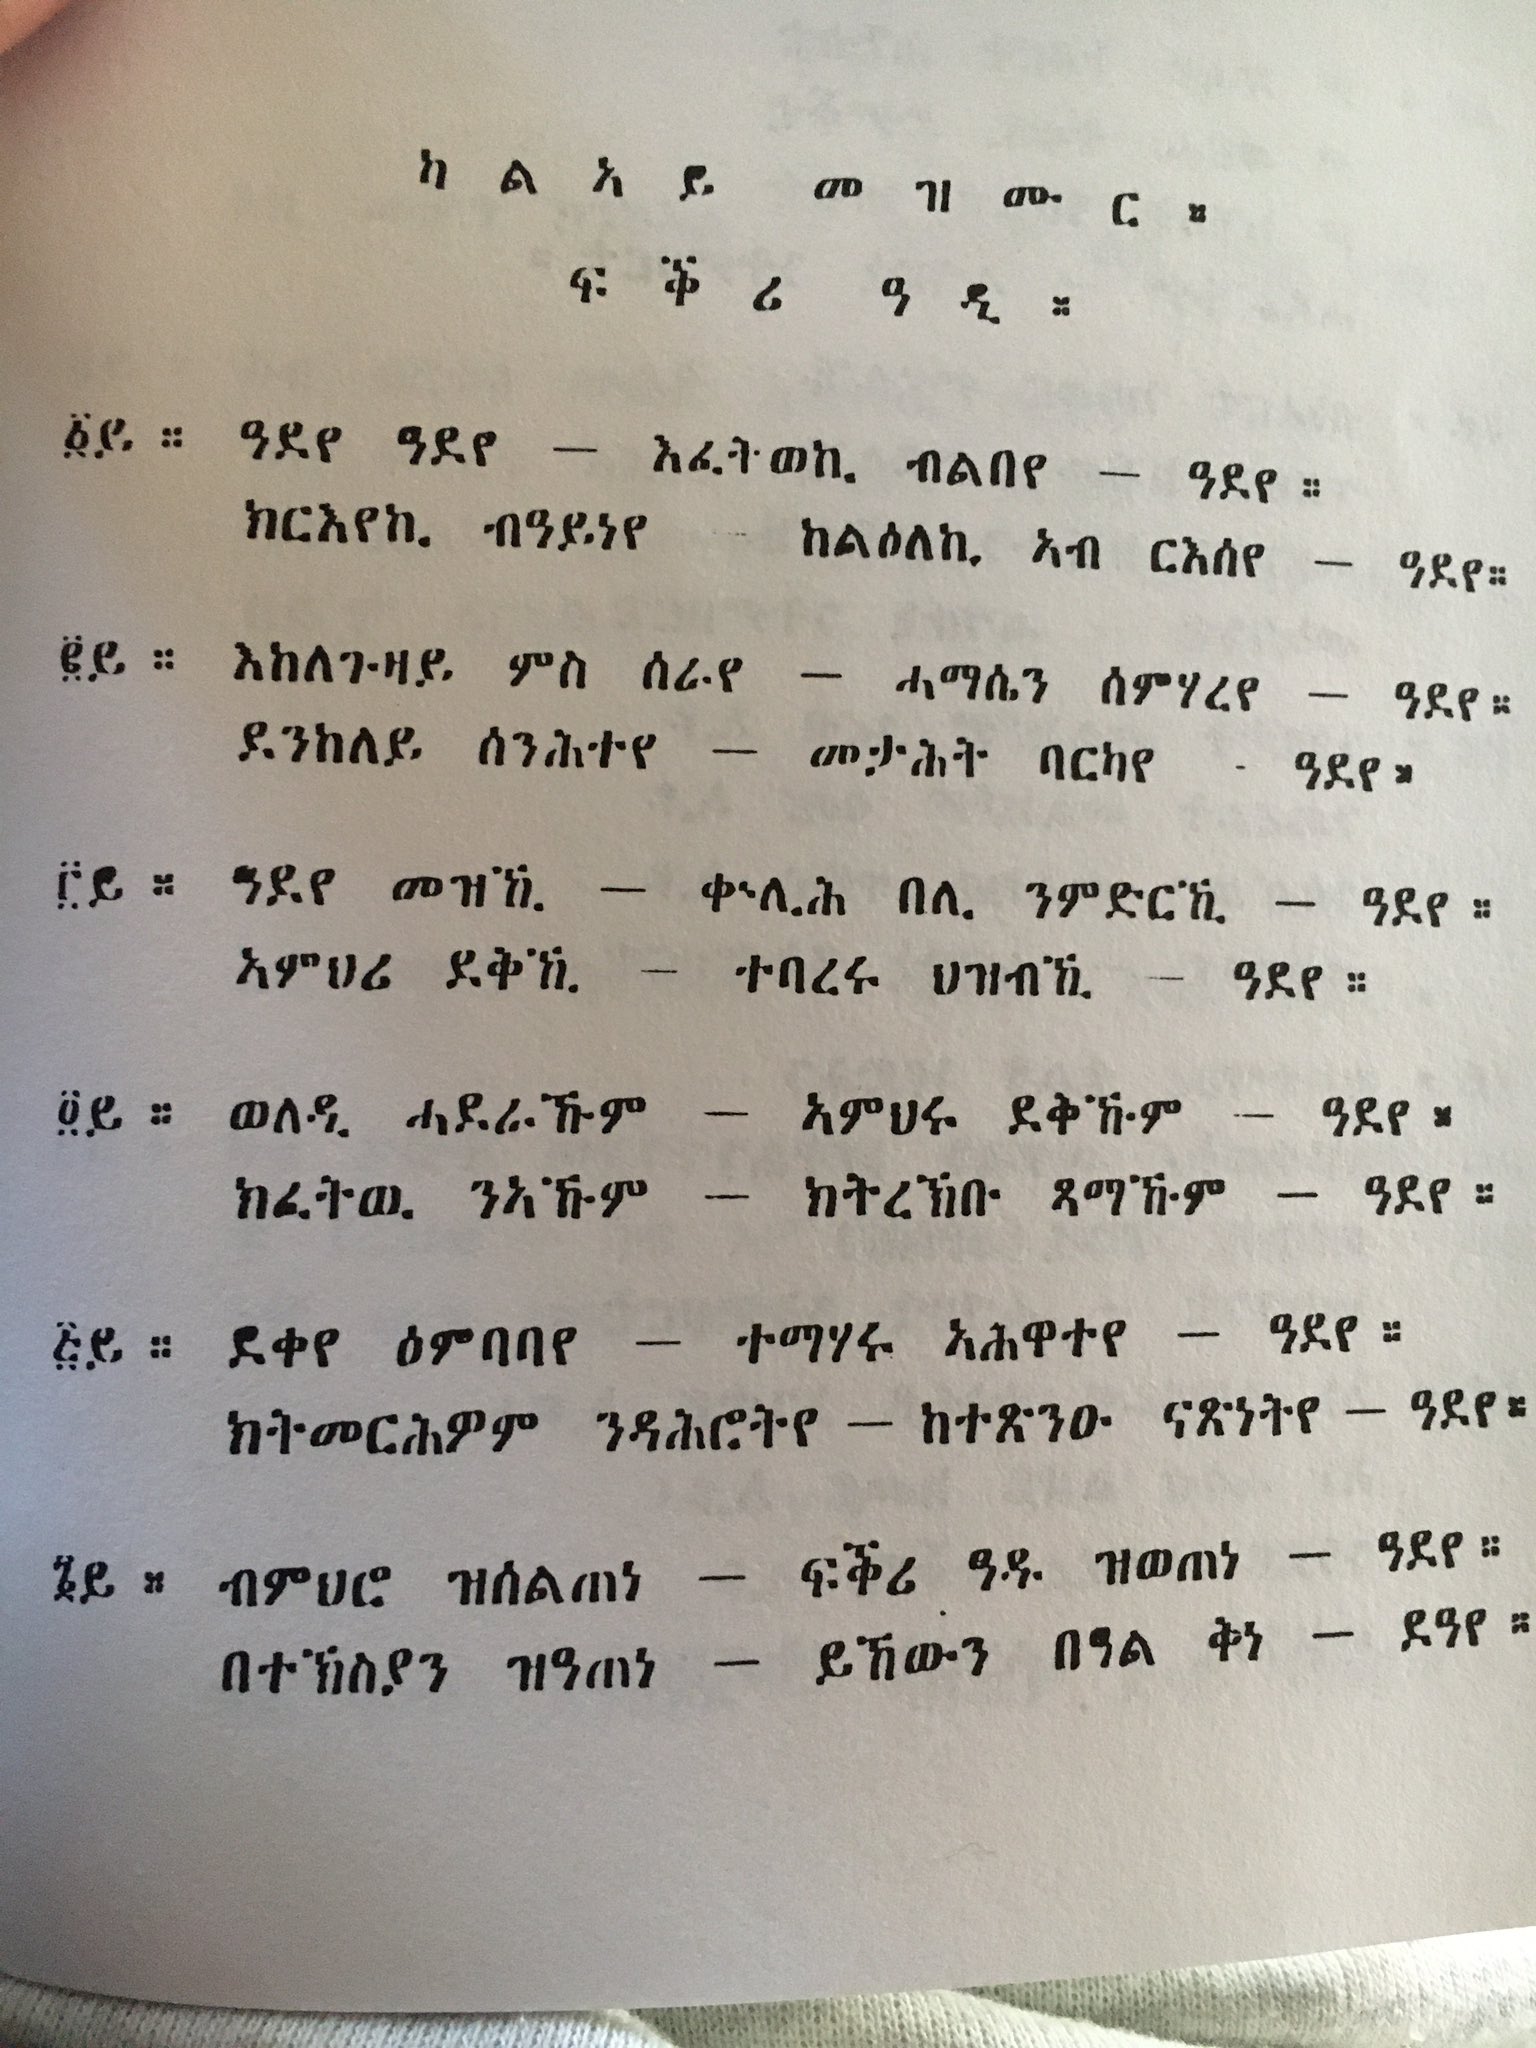 ካልኣይ መዝሙር ።
ፍቕሪ ዓዲ ።
፩ይ ። ዓደየ ዓደየ — እፈትወኪ ብልበየ — ዓደየ ።
ክርእየኪ ብዓይነየ — ከልዕለኪ ኣብ ርእሰየ — ዓደየ።
፪ይ ። እከለጉዛይ ምስ ሰራየ — ሓማሴን ሰምሃረየ — ዓደየ ።
ደንከለይ ሰንሕተየ — መታሕት ባርካየ - ዓደየ ።
፫ይ ። ዓደየ መዝኺ — ቀኅሊሕ በሊ ንምድርኺ — ዓደየ ።
ኣምህሪ ደቅኺ — ተባረሩ ህዝብኺ — ዓደየ ።
፬ይ ። ወለዲ ሓደራኹም — ኣምህሩ ደቅኹም — ዓደየ ።
ክፈትወ ንኣኹም — ክትረኽቡ ጻማኹም — ዓደየ ።
፭ይ ። ደቀየ ዕምባባየ — ተማሃሩ ኣሕዋተየ — ዓደየ ።
ክትመርሕዎም ንዳሕሮትየ — ከተጽንዑ ናጽነትየ — ዓደየ ።
፮ይ ። ብምህሮ ዝሰልጠነ — ፍቕሪ ዓዱ ዝወጠነ — ዓደየ ።
በተኽስያን ዝዓጠነ — ይኸውን በዓል ቅነ — ደዓየ ።